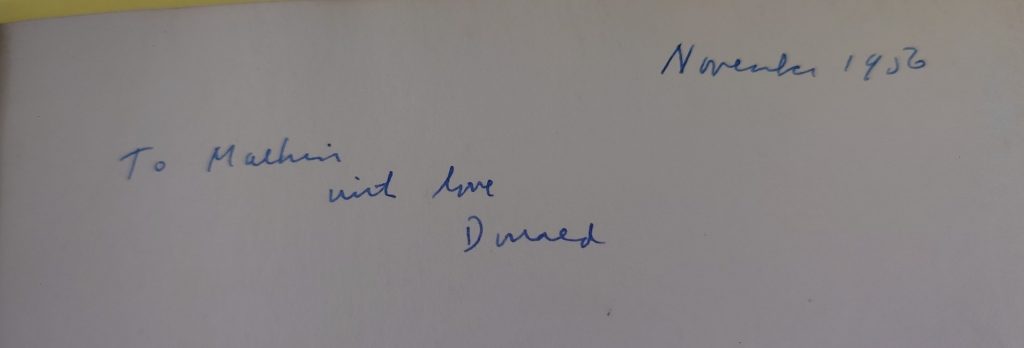 November 1956
To
with love
Donald